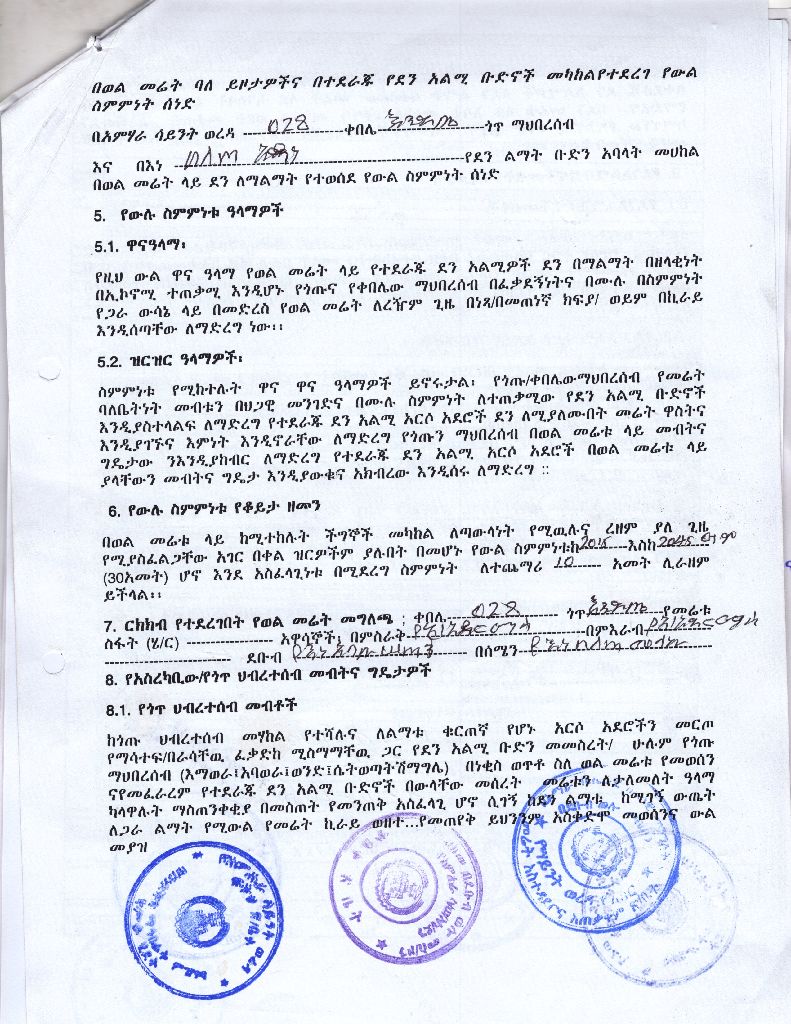 በወል መሬት ባለ ይዞታዎችና በተደራጁ የደን አልሚ ቡድኖች መካከልየተደረገ የውል
ስምምነት ሰነድ
በአምሃራ ሳይንት ወረዳ ---------------028---------ቀበሌ--------------------ጎጥ ማህበረሰብ
እና በእነ ----------------------------------------------------------የደን ልማት ቡድን አባላት መሀከል
በወል መሬት ላይ ደን ለማልማት የተወሰደ የውል ስምምነት ሰነድ
5. የውሉ ስምምነቱ ዓላማዎች
5.1. ዋናዓላማ፡
የዚህ ውል ዋና ዓላማ የወል መሬት ላይ የተደራጁ ደን አልሚዎች ደን በማልማት በዘላቂነት
በኢኮኖሚ ተጠቃሚ እንዲሆኑ የጎጡና የቀበሌው ማህበረሰብ በፈቃደኝነትና በሙሉ በስምምነት
የጋራ ውሳኔ ላይ በመድረስ የወል መሬት ለረዥም ጊዜ በነጻ/በመጠነኛ ክፍያ/ ወይም በኪራይ
እንዲሰጣቸው ለማድረግ ነው፡፡
5.2. ዝርዝር ዓላማዎች፡
ስምምነቱ የሚከተሉት ዋና ዋና ዓላማዎች ይኖሩታል፡ የጎጡ/ቀበሌውማህበረሰብ የመሬት
ባለቤትነት መብቱን በህጋዊ መንገድና በሙሉ ስምምነት ለተጠቃሚው የደን አልሚ ቡድኖች
እንዲያስተላልፍ ለማድረግ የተደራጁ ደን አልሚ አርሶ አደሮች ደን ለሚያለሙበት መሬት ዋስትና
እንዲያገኙና እምነት እንዲኖራቸው ለማድረግ የጎጡን ማህበረሰብ በወል መሬቱ ላይ መብትና
ግዴታው ንእንዲያከብር ለማድረግ የተደራጁ ደን አልሚ አርሶ አደሮች በወል መሬቱ ላይ
ያላቸውን መብትና ግዴታ እንዲያውቁና አክብረው እንዲሰሩ ለማድረግ ::
6. የውሉ ስምምነቱ የቆይታ ዘመን
በወል መሬቱ ላይ ከሚተከሉት ችግኞች መካከል ለጣውላነት የሚዉሉና ረዘም ያለ ጊዜ
የሚያስፈልጋቸው አገር በቀል ዝርዎችም ያሉበት በመሆኑ የውል ስምምነቱከ2015-----እስከ2045
(30አመት) ሆኖ እንደ አስፈላጊነቱ በሚደረግ ስምምነት ለተጨማሪ 10------ አመት ሊራዘም
ይችላል፡፡
7. ርክክብ የተደረገበት የወል መሬት መግለጫ ፡ ቀበሌ-------028-------- ጎጥ-----------የመሬቱ
ስፋት (ሄ/ር) ------------------ አዋሳኞች፤ በምስራቅ-----------------------------በምእራብ-----------------
-------------------------- ደቡብ -------------------------- በሰሜን----------------------------
8. የአስረካቢው/የጎጥ ህብረተሰብ መብትና ግዴታዎች
8.1. የጎጥ ህብረተሰብ መብቶች
ከጎጡ ህብረተሰብ መሃከል የተሻሉና ለልማቱ ቁርጠኛ የሆኑ አርሶ አደሮችን መርጦ
የማሳተፍ/በራሳቸዉ ፈቃድከ ሚስማማቸዉ ጋር የደን አልሚ ቡድን መመስረት/ ሁሉም የጎጡ
ማህበረሰብ (እማወራ፤አባወራ፤ወንድ፤ሴትወጣትሽማግሌ) በነቂስ ወጥቶ ስለ ወል መሬቱ የመወሰን
ናየመፈራረም የተደራጁ ደን አልሚ ቡድኖች በውላቸው መሰረት መሬቱን ለታለመለት ዓላማ
ካላዋሉት ማስጠንቀቂያ በመስጠት የመንጠቅ አስፈላጊ ሆኖ ሲገኝ ከደን ልማቱ ከሚገኝ ውጤት
ለጋራ ልማት የሚውል የመሬት ኪራይ ወዘተ...የመጠየቅ ይህንንም አስቀድሞ መወሰንና ውል
መያዝ